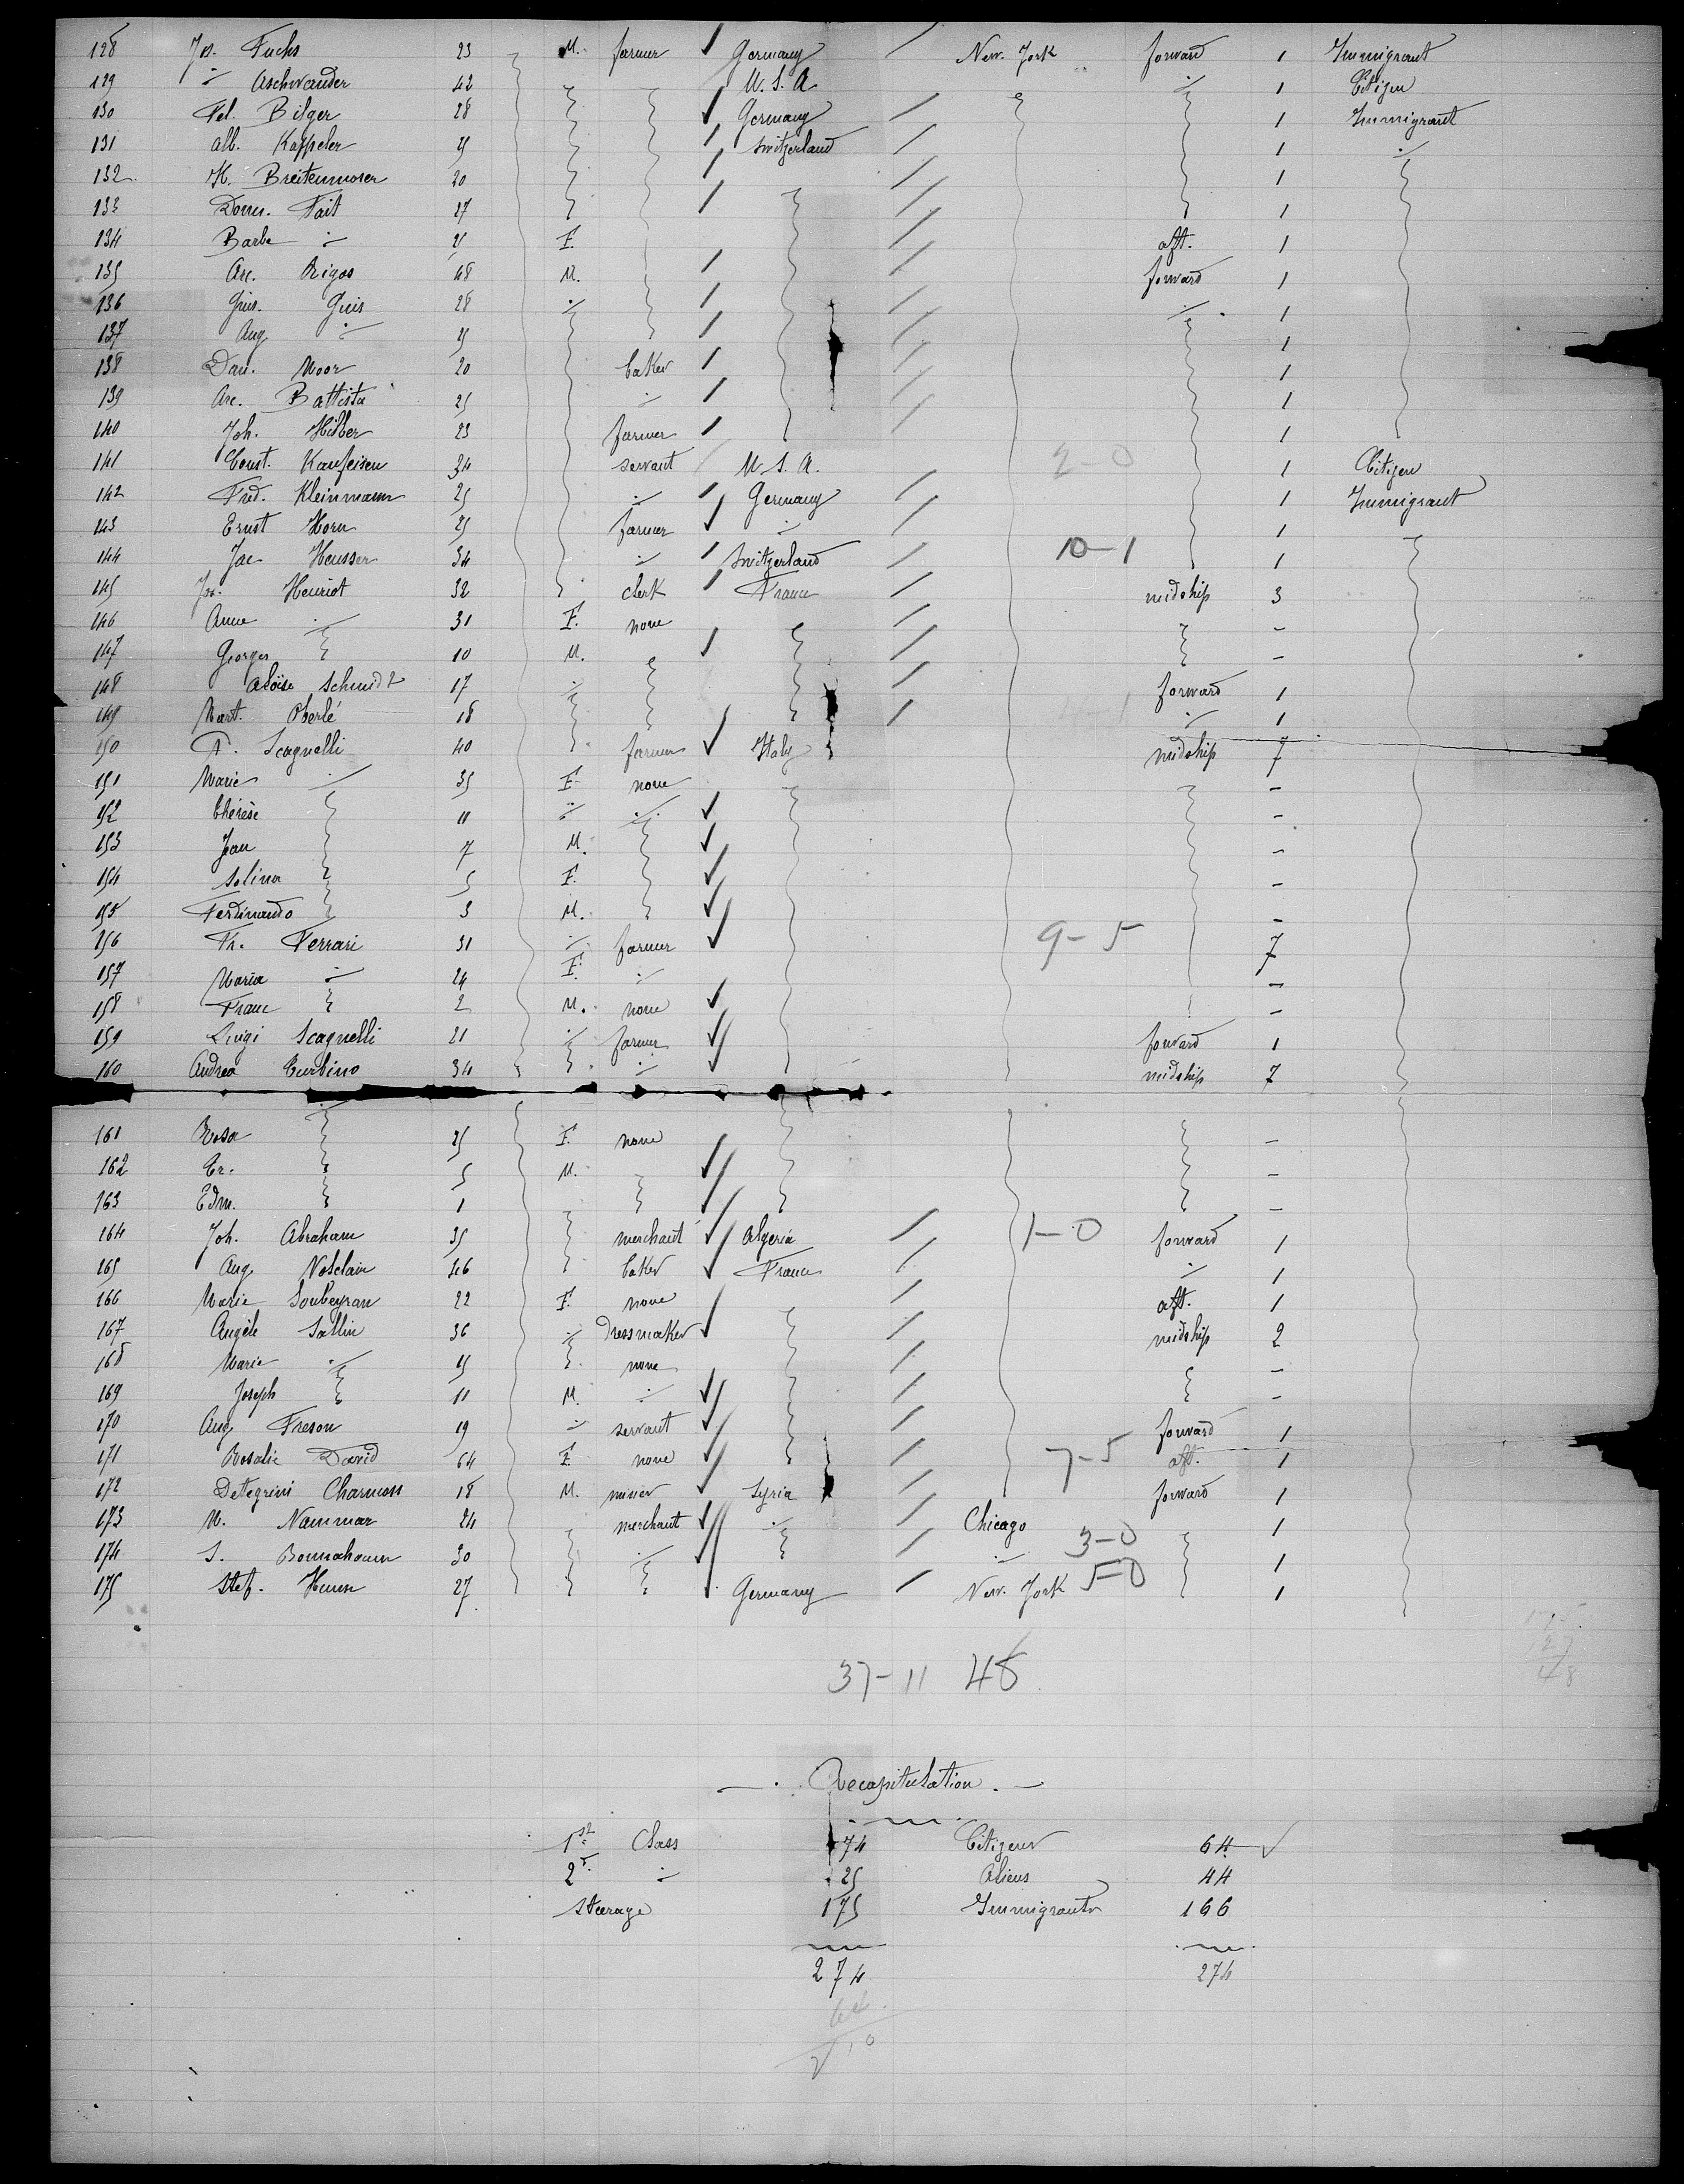 128 Jos. Fuchs 23 M. farmer Germany New. York forward 1 Immigrant
129 " Aschwander 42 U.S.A. " 1 Citizen
130 Fel. Bilger 28 Germany 1 Immigrant
131 Alb. Kappeler 25 Switzerland 1 "
132 H. Breitenmoser 20 1
133 Dom. Fait 27 1
134 Barbe " 25 F. aft. 1
135 Arc. Rigos 48 M. forward 1
136 Gius. Guis 28 " " 1
137 Aug. " 25 1
138 Dan. Moor 20 baker 1
139 Arc. Battista 25 " 1
140 Joh. Hilber 23 farmer 1
141 Const. Kaufeisen 34 servant U.S.A. 2-0 1 Citizen
142 Fred. Kleinmann 25 " Germany 1 Immigrant
143 Ernst Horn 25 farmer " 1
144 Jac Heusser 34 " Switzerland 10-1 1
145 Jos. Henriot 32 clerk France midship 3
146 Anne " 31 F. none -
147 Georges 10 M. -
148 Aloïse Schmidt 17 " forward 1
149 Mart. Oberlé 18 " 1
150 A. Scagnelli 40 farmer Italy midship 7
151 Marie " 35 F. none -
152 Thérèse 11 " " -
153 Jean 7 M. -
154 Selina 5 F. -
155 Ferdinando 3 M. -
156 Fr. Ferrari 31 " farmer 9-5 7
157 Maria " 24 F. " -
158 Franc 2 M. none -
159 Luigi Scagnelli 21 " farmer forward 1
160 Andrea Curbino 34 " midship 7
161 Rosa 25 F. none -
162 Cr. 5 M. -
163 Edm. 1 -
164 Joh. Abraham 35 merchant Algeria 1-0 forward 1
165 Aug. Nosclair 46 baker France " 1
166 Marie Soubeyran 22 F. none aft. 1
167 Angèle Sallin 36 " Dressmaker midship 2
168 Marie " 15 none -
169 Joseph 11 M. " -
170 Aug. Freson 19 " servant forward 1
171 Rosalie David 64 F. none 7-5 aft. 1
172 Detegrini Charmoss 18 M. miner Syria forward 1
173 M. Nammar 24 merchant " Chicago 1
174 S. Bonnahoum 30 " " 3-0 1
175 Stef. Humm 27 Germany New. York 5-0 1
37-11 48
Recapitulation.
1st Class 74 Citizens 64
2d " 25 Aliens 44
Steerage 175 Immigrants 166
274 274
64